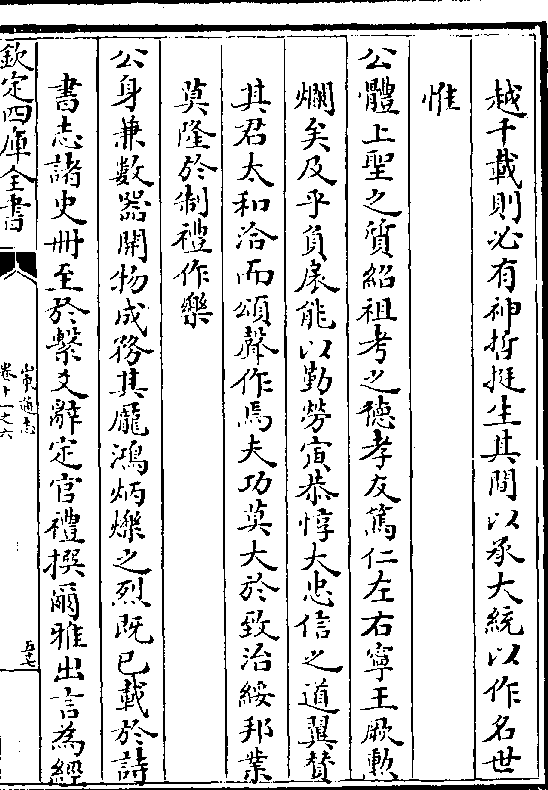 越千載則必有神哲挺生其間以承大統以作名世
惟
公體上聖之質紹祖考之德孝友篤仁左右寧王厥勲
爛矣及乎負扆能以勤勞寅恭惇大忠信之道翼賛
其君太和洽而頌聲作焉夫功莫大於致治綏邦業
莫隆於制禮作樂
公身兼數器開物成務其龎鴻炳爍之烈既已載於詩
書志諸史冊至於繫爻辭定官禮撰爾雅出言為經
欽定四庫全書
山東通志
卷十一之六
五七